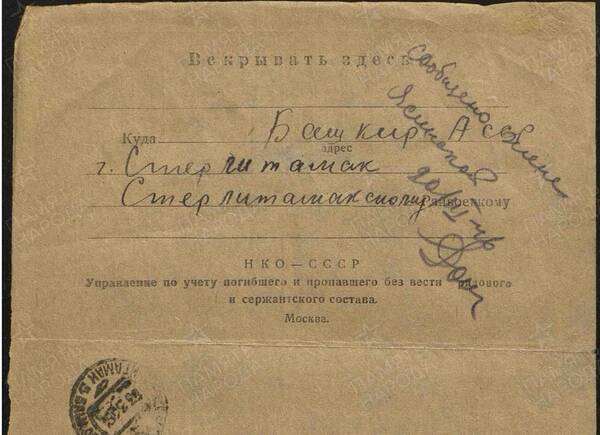 Вскрывать здесь
Куда Башкир АССР
адрес
г. Стерлитамак
Стерлитамакскому Райвоенкому
сообщено
20/VI-
НКО—СССР
Управление по учету погибшего и пропавшего без вести рядового
и сержантского состава.
Москва.
ПАМЯТЬ НАРОДА